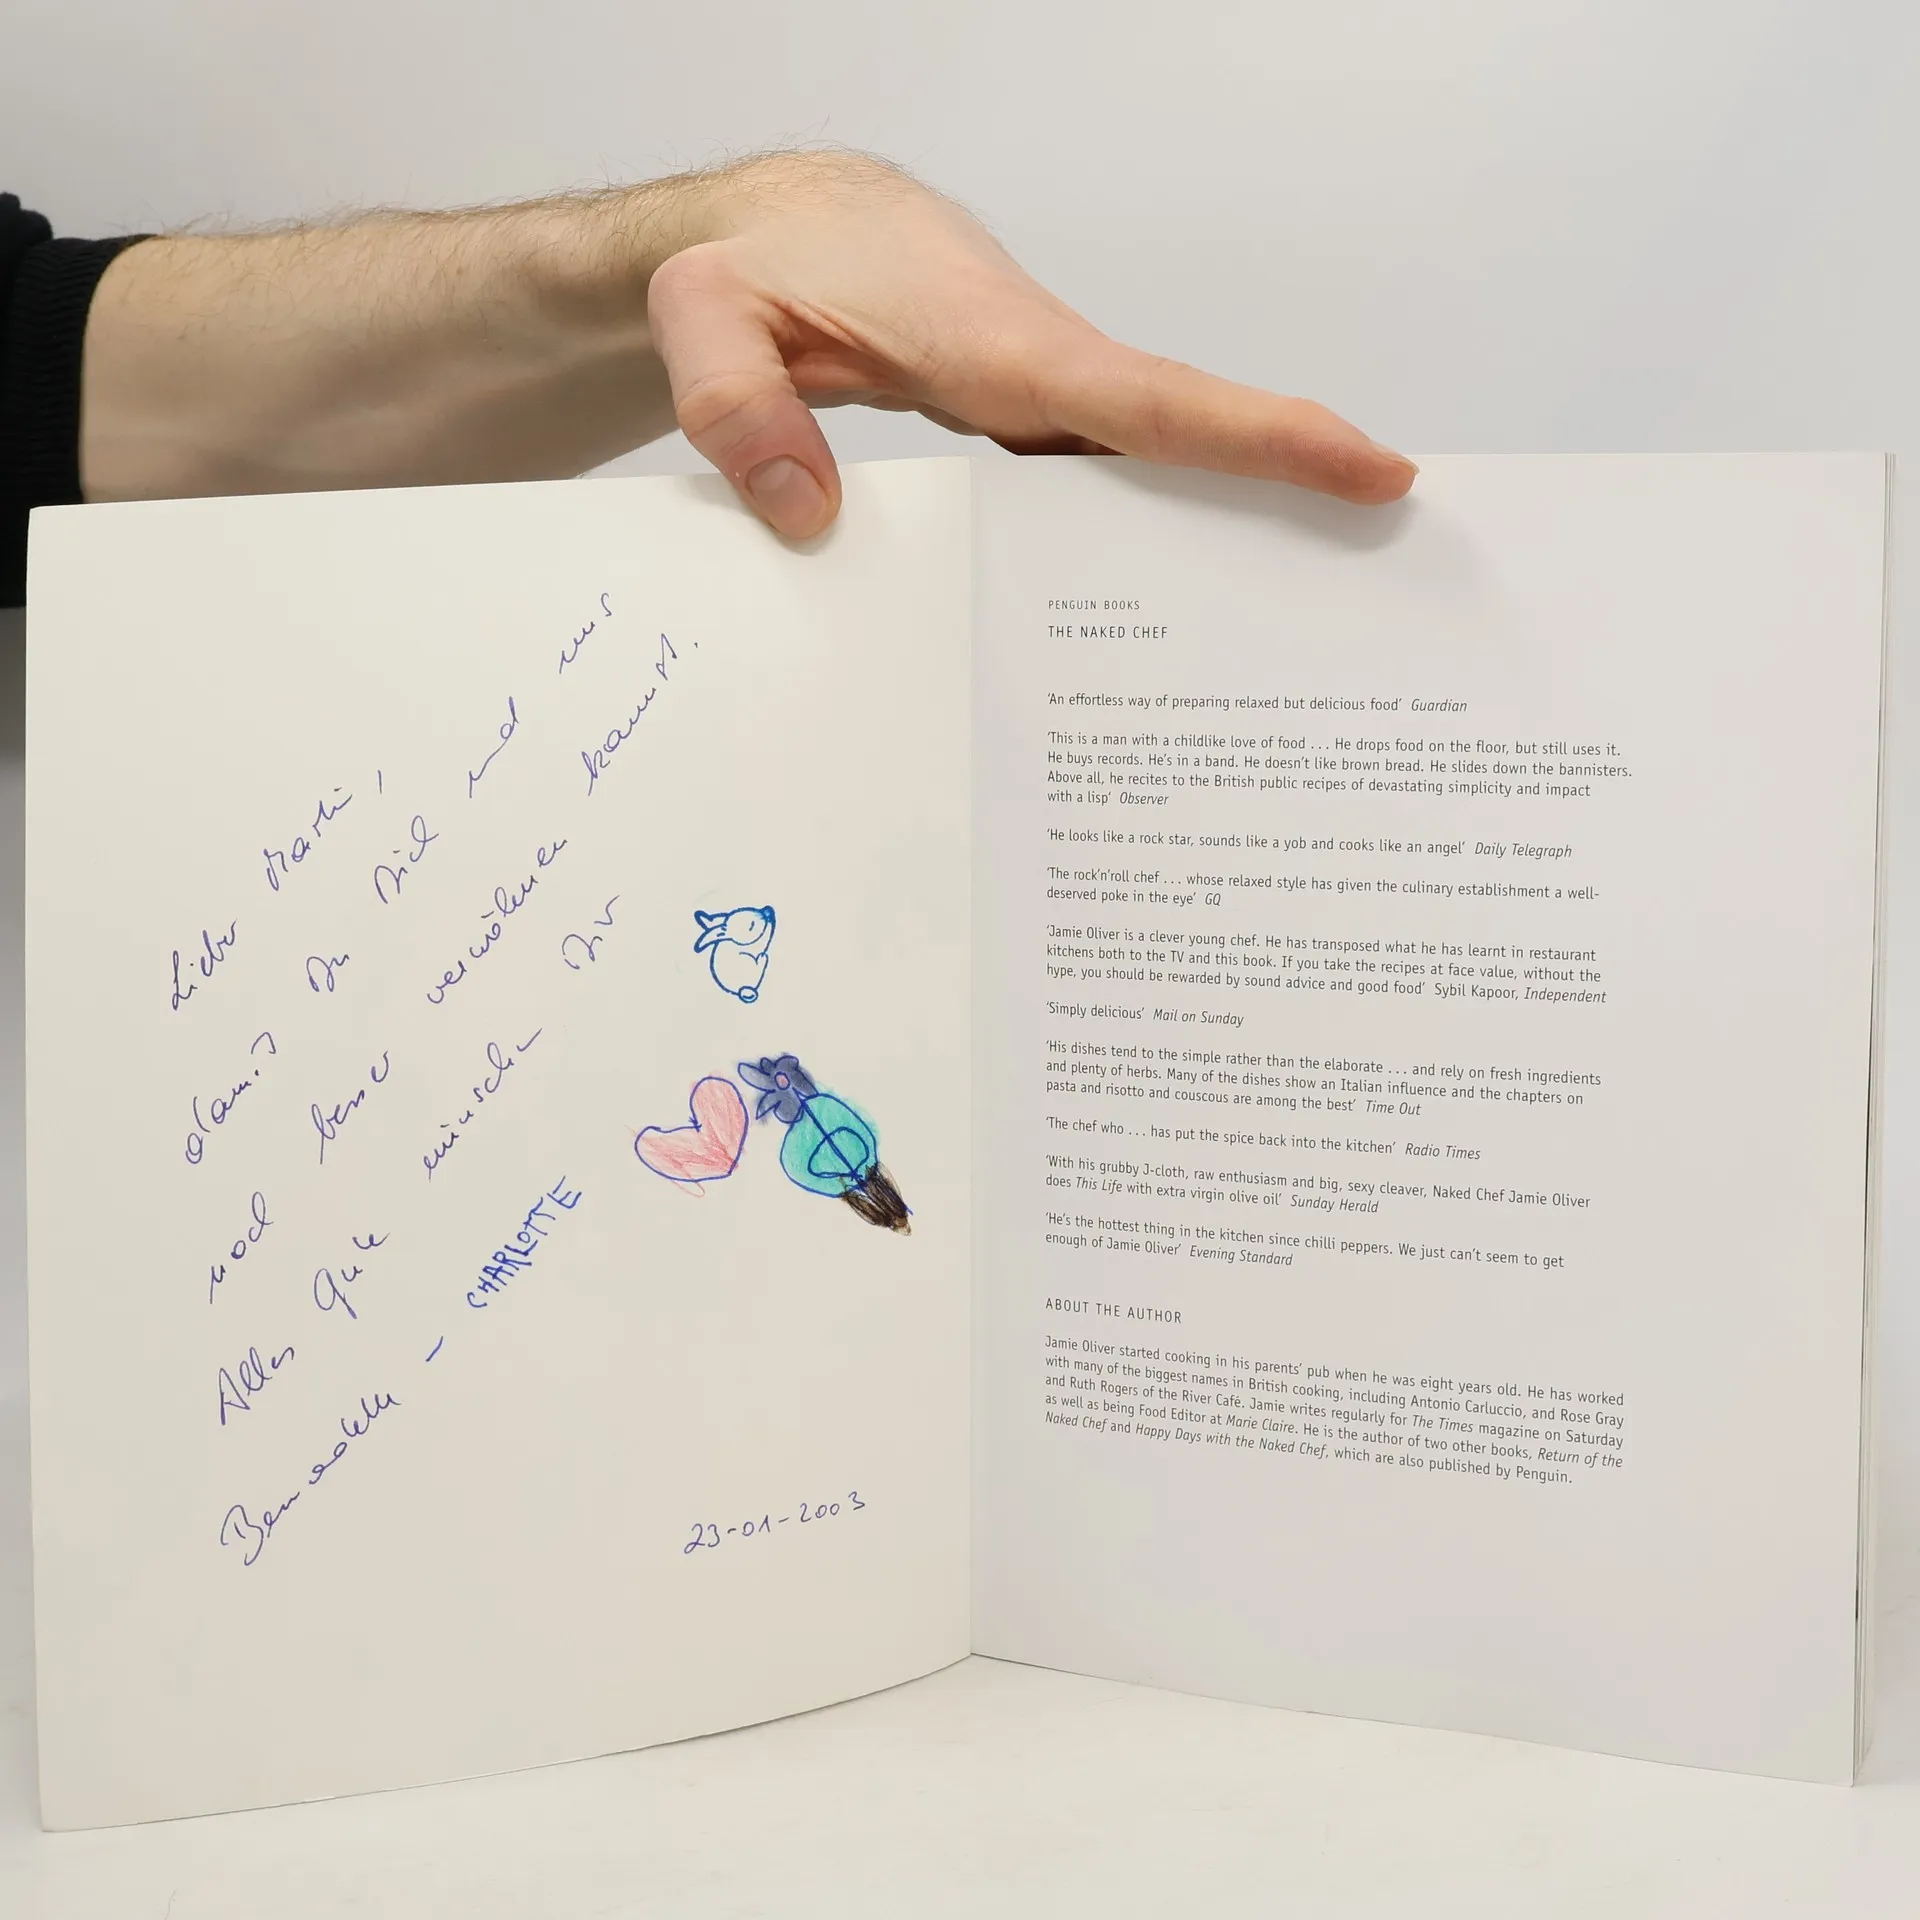 Lieber Martin!
damit Du Dich und uns
noch besser verwöhnen kannst.
Alles Gute wünschen Dir
Bernadette – CHARLOTTE
23-01-2003
PENGUIN BOOKS
THE NAKED CHEF
‘An effortless way of preparing relaxed but delicious food’ Guardian
‘This is a man with a childlike love of food . . . He drops food on the floor, but still uses it.
He buys records. He’s in a band. He doesn’t like brown bread. He slides down the bannisters.
Above all, he recites to the British public recipes of devastating simplicity and impact
with a lisp’ Observer
‘He looks like a rock star, sounds like a yob and cooks like an angel’ Daily Telegraph
‘The rock’n’roll chef . . . whose relaxed style has given the culinary establishment a well-
deserved poke in the eye’ GQ
‘Jamie Oliver is a clever young chef. He has transposed what he has learnt in restaurant
kitchens both to the TV and this book. If you take the recipes at face value, without the
hype, you should be rewarded by sound advice and good food’ Sybil Kapoor, Independent
‘Simply delicious’ Mail on Sunday
‘His dishes tend to the simple rather than the elaborate . . . and rely on fresh ingredients
and plenty of herbs. Many of the dishes show an Italian influence and the chapters on
pasta and risotto and couscous are among the best’ Time Out
‘The chef who . . . has put the spice back into the kitchen’ Radio Times
‘With his grubby J-cloth, raw enthusiasm and big, sexy cleaver, Naked Chef Jamie Oliver
does This Life with extra virgin olive oil’ Sunday Herald
‘He’s the hottest thing in the kitchen since chilli peppers. We just can’t seem to get
enough of Jamie Oliver’ Evening Standard
ABOUT THE AUTHOR
Jamie Oliver started cooking in his parents’ pub when he was eight years old. He has worked
with many of the biggest names in British cooking, including Antonio Carluccio, and Rose Gray
and Ruth Rogers of the River Café. Jamie writes regularly for The Times magazine on Saturday
as well as being Food Editor at Marie Claire. He is the author of two other books, Return of the
Naked Chef and Happy Days with the Naked Chef, which are also published by Penguin.